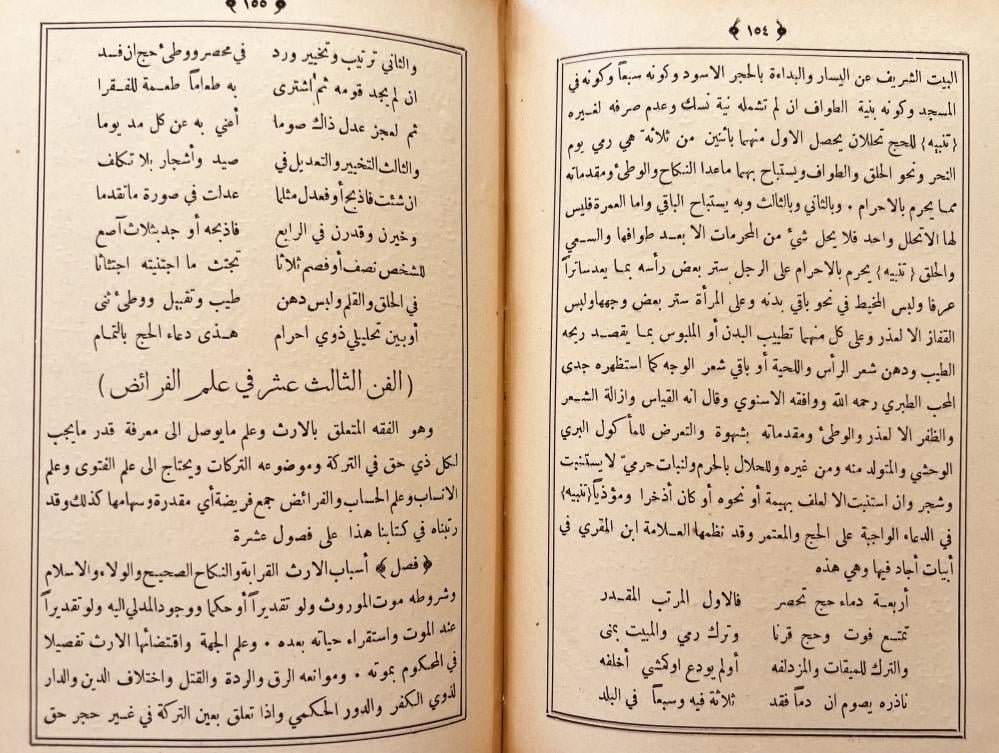 ﴿ ١٥٤ ﴾
البيت الشريف عن اليسار والبداءة بالحجر الاسود وكونه سبعاً وكونه في
المسجد وكونه بنية الطواف ان لم تشمله نية نسك وعدم صرفه لغيره
{تنبيه} للحج تحللان يحصل الاول منهما باثنين من ثلاثة هي رمي يوم
النحر ونحو الحلق والطواف ويستباح بهما ماعدا النكاح والوطئ ومقدماته
مما يحرم بالاحرام . وبالثاني وبالثالث وبه يستباح الباقي واما العمرة فليس
لها الاتحلل واحد فلا يحل شيء من المحرمات الا بعد طوافها والسعي
والحلق {تنبيه} يحرم بالاحرام على الرجل ستر بعض رأسه بما يعد ساتراً
عرفا ولبس المخيط في نحو باقي بدنه وعلى المرأة ستر بعض وجهها ولبس
القفاز الا لعذر وعلى كل منهما تطييب البدن أو الملبوس بما يقصد ريحه
الطيب ودهن شعر الرأس واللحية أو باقي شعر الوجه كما استظهره جدى
المحب الطبري رحمه الله ووافقه الاسنوي وقال انه القياس وازالة الشعر
والظفر الا لعذر والوطئ ومقدماته بشهوة والتعرض للمأكول البري
الوحشي والمتولد منه ومن غيره وللحلال بالحرم ولنبات حرمي لا يستنبت
وشجر وان استنبت الا لعلف بهيمة أو نحوه أو كان أذخرا ومؤذياً {تنبيه}
في الدعاء الواجبة على الحج والمعتمر وقد نظمها العلامة ابن المقري في
أبيات أجاد فيها وهي هذه
أربعة دماء حج تحصر فالاول المرتب المقدر
تمتع فوت وحج قرنا وترك رمي والمبيت بمنى
والترك للميقات والمزدلفه أو لم يودع اوكمشي أخلفه
ناذره يصوم ان دماً فقد ثلاثة فيه وسبعاً في البلد
﴿ ١٥٥ ﴾
والثاني ترتيب وتخيير ورد في محصر ووطئ حج ان فسد
ان لم يجد قومه ثم اشترى به طعاماً طعمة للفقرا
ثم لعجز عدل ذاك صوما أعني به عن كل مد يوما
والثالث التخيير والتعديل في صيد وأشجار بلا تكلف
ان شئت فاذبح أو فعدل مثلما عدلت في صورة ماتقدما
وخيرن وقدرن في الرابع فاذبحه أو جد بثلاث آصع
للشخص نصف أو فصم ثلاثا تجتث ما اجتنبته اجتثاثا
في الحلق والقلم ولبس دهن طيب وتقبيل ووطئ ثنى
أو بين تحليلي ذوي احرام هذى دعاء الحج بالتمام
(الفن الثالث عشر في علم الفرائض)
وهو الفقه المتعلق بالارث وعلم مايوصل الى معرفة قدر مايجب
لكل ذي حق في التركة وموضوعه التركات ويحتاج الى علم الفتوى وعلم
الانساب وعلم الحساب والفرائض جمع فريضة أي مقدرة وسهامها كذلك وقد
رتبناه في كتابنا هذا على فصول عشرة
﴿فصل﴾ أسباب الارث القرابة والنكاح الصحيح والولاء والاسلام
وشروطه موت الموروث ولو تقديراً أو حكما ووجود المدلي اليه ولو تقديراً
عند الموت واستقراء حياته بعده . وعلم الجهة واقتضائها الارث تفصيلا
في المحكوم بموته . وموانعه الرق والردة والقتل واختلاف الدين والدار
لذوي الكفر والدور الحكمي واذا تعلق بعين التركة في غير حجر حق